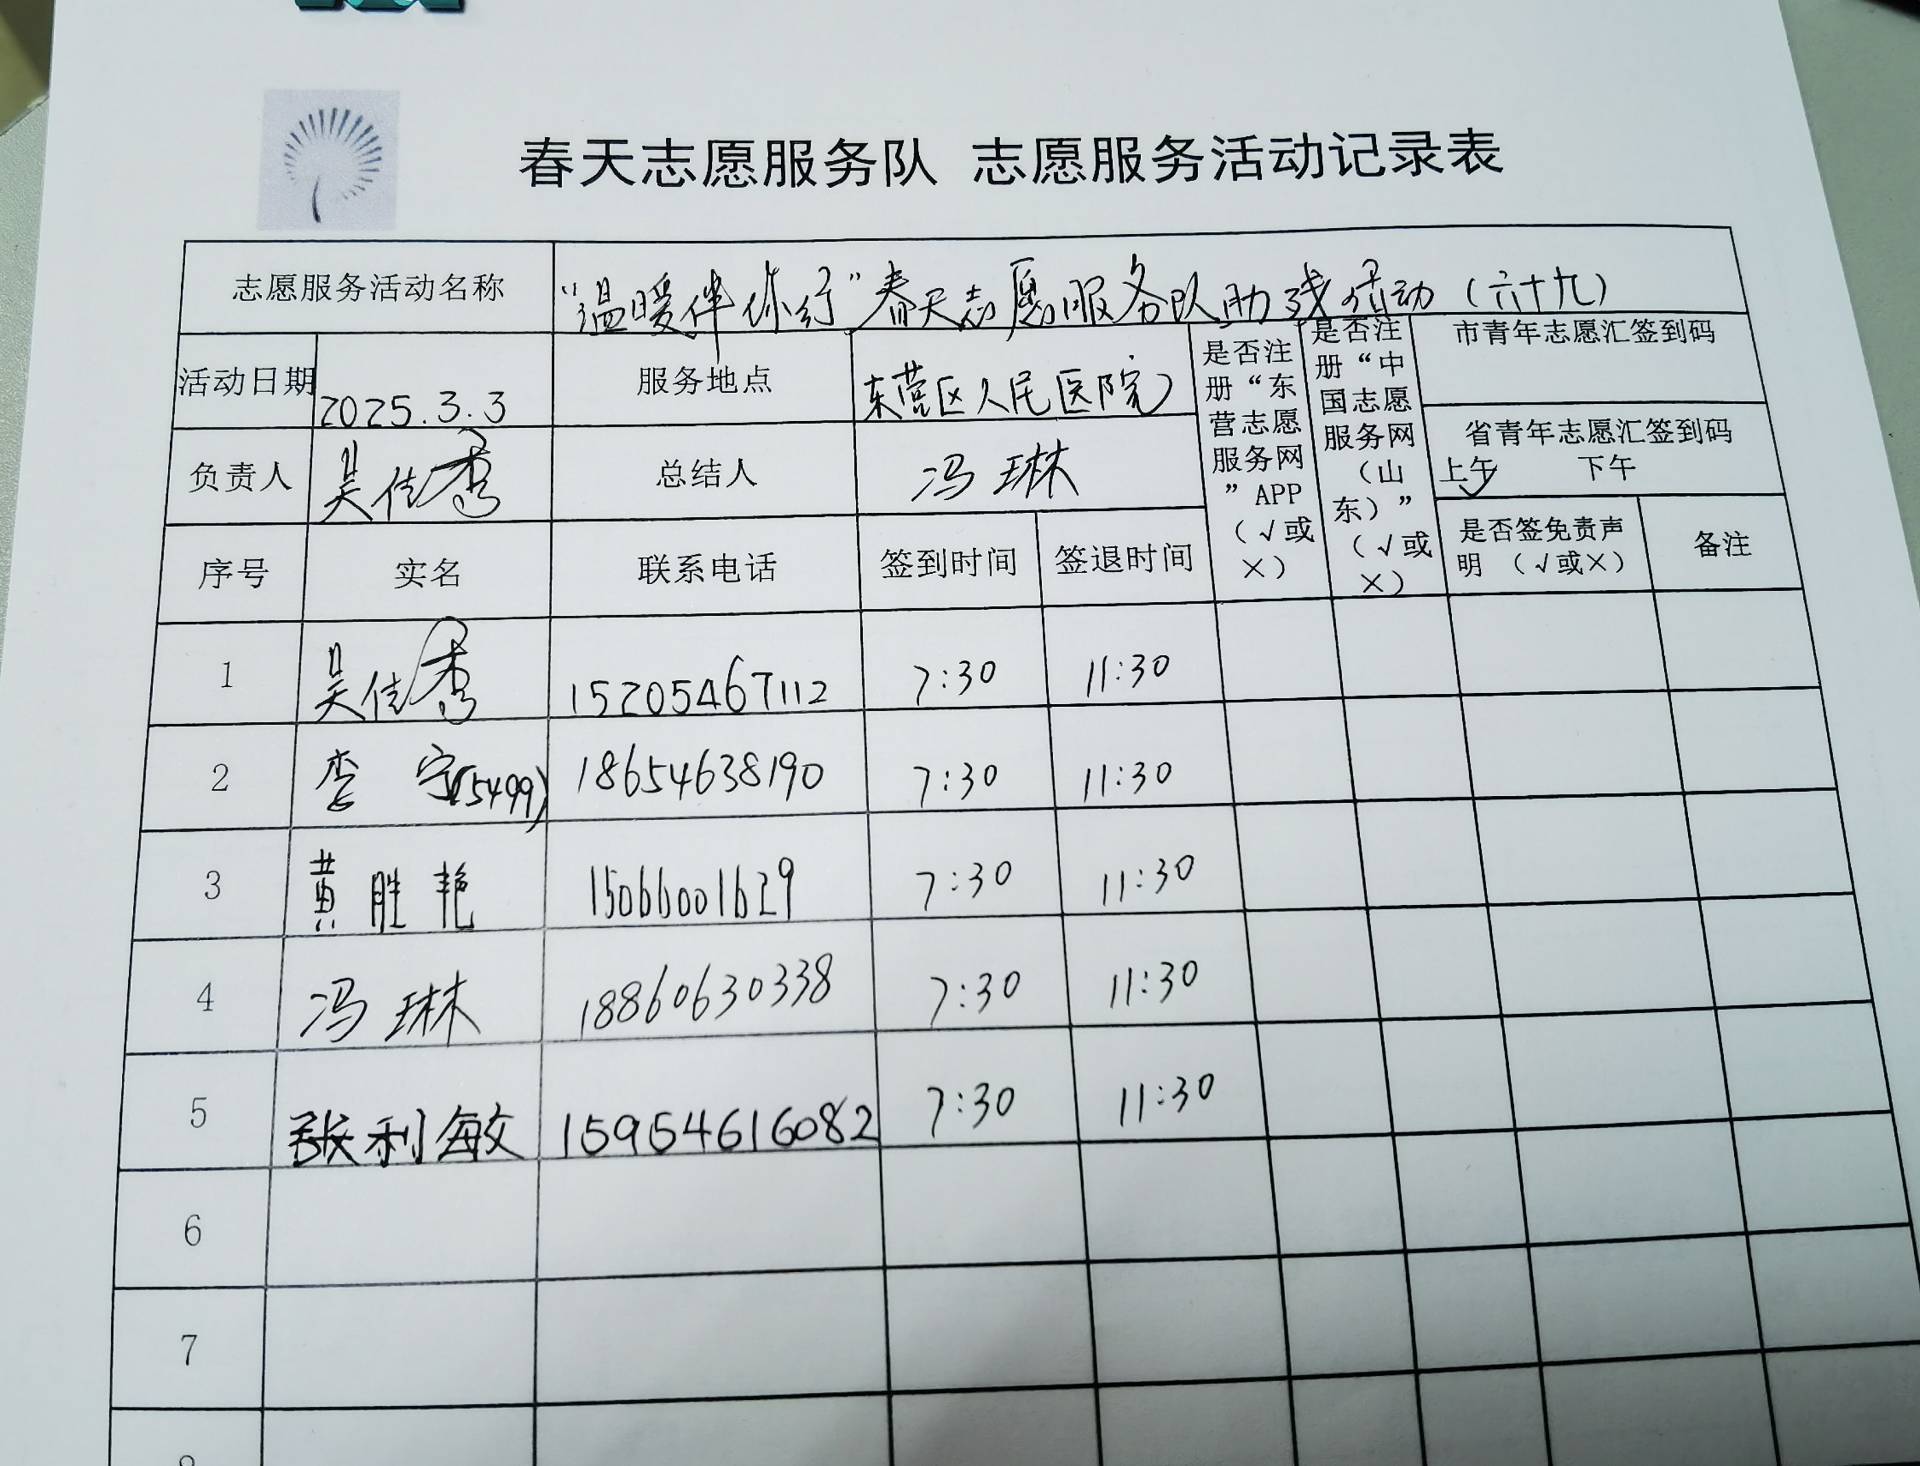 春天志愿服务队 志愿服务活动记录表
志愿服务活动名称 “温暖伴你行”春天志愿服务队助残活动（六十九）
活动日期 2025.3.3 服务地点 东营区人民医院
是否注册“东营志愿服务网”APP（√或×）
是否注册“中国志愿服务网（山东）”（√或×）
市青年志愿汇签到码
省青年志愿汇签到码
上午√ 下午
负责人 吴佳秀 总结人 冯琳
序号 实名 联系电话 签到时间 签退时间 是否签免责声明（√或×） 备注
1 吴佳秀 15205467112 7:30 11:30
2 李宁(5499) 18654638190 7:30 11:30
3 黄胜艳 15066001629 7:30 11:30
4 冯琳 18860630338 7:30 11:30
5 张利敏 15954616082 7:30 11:30
6
7